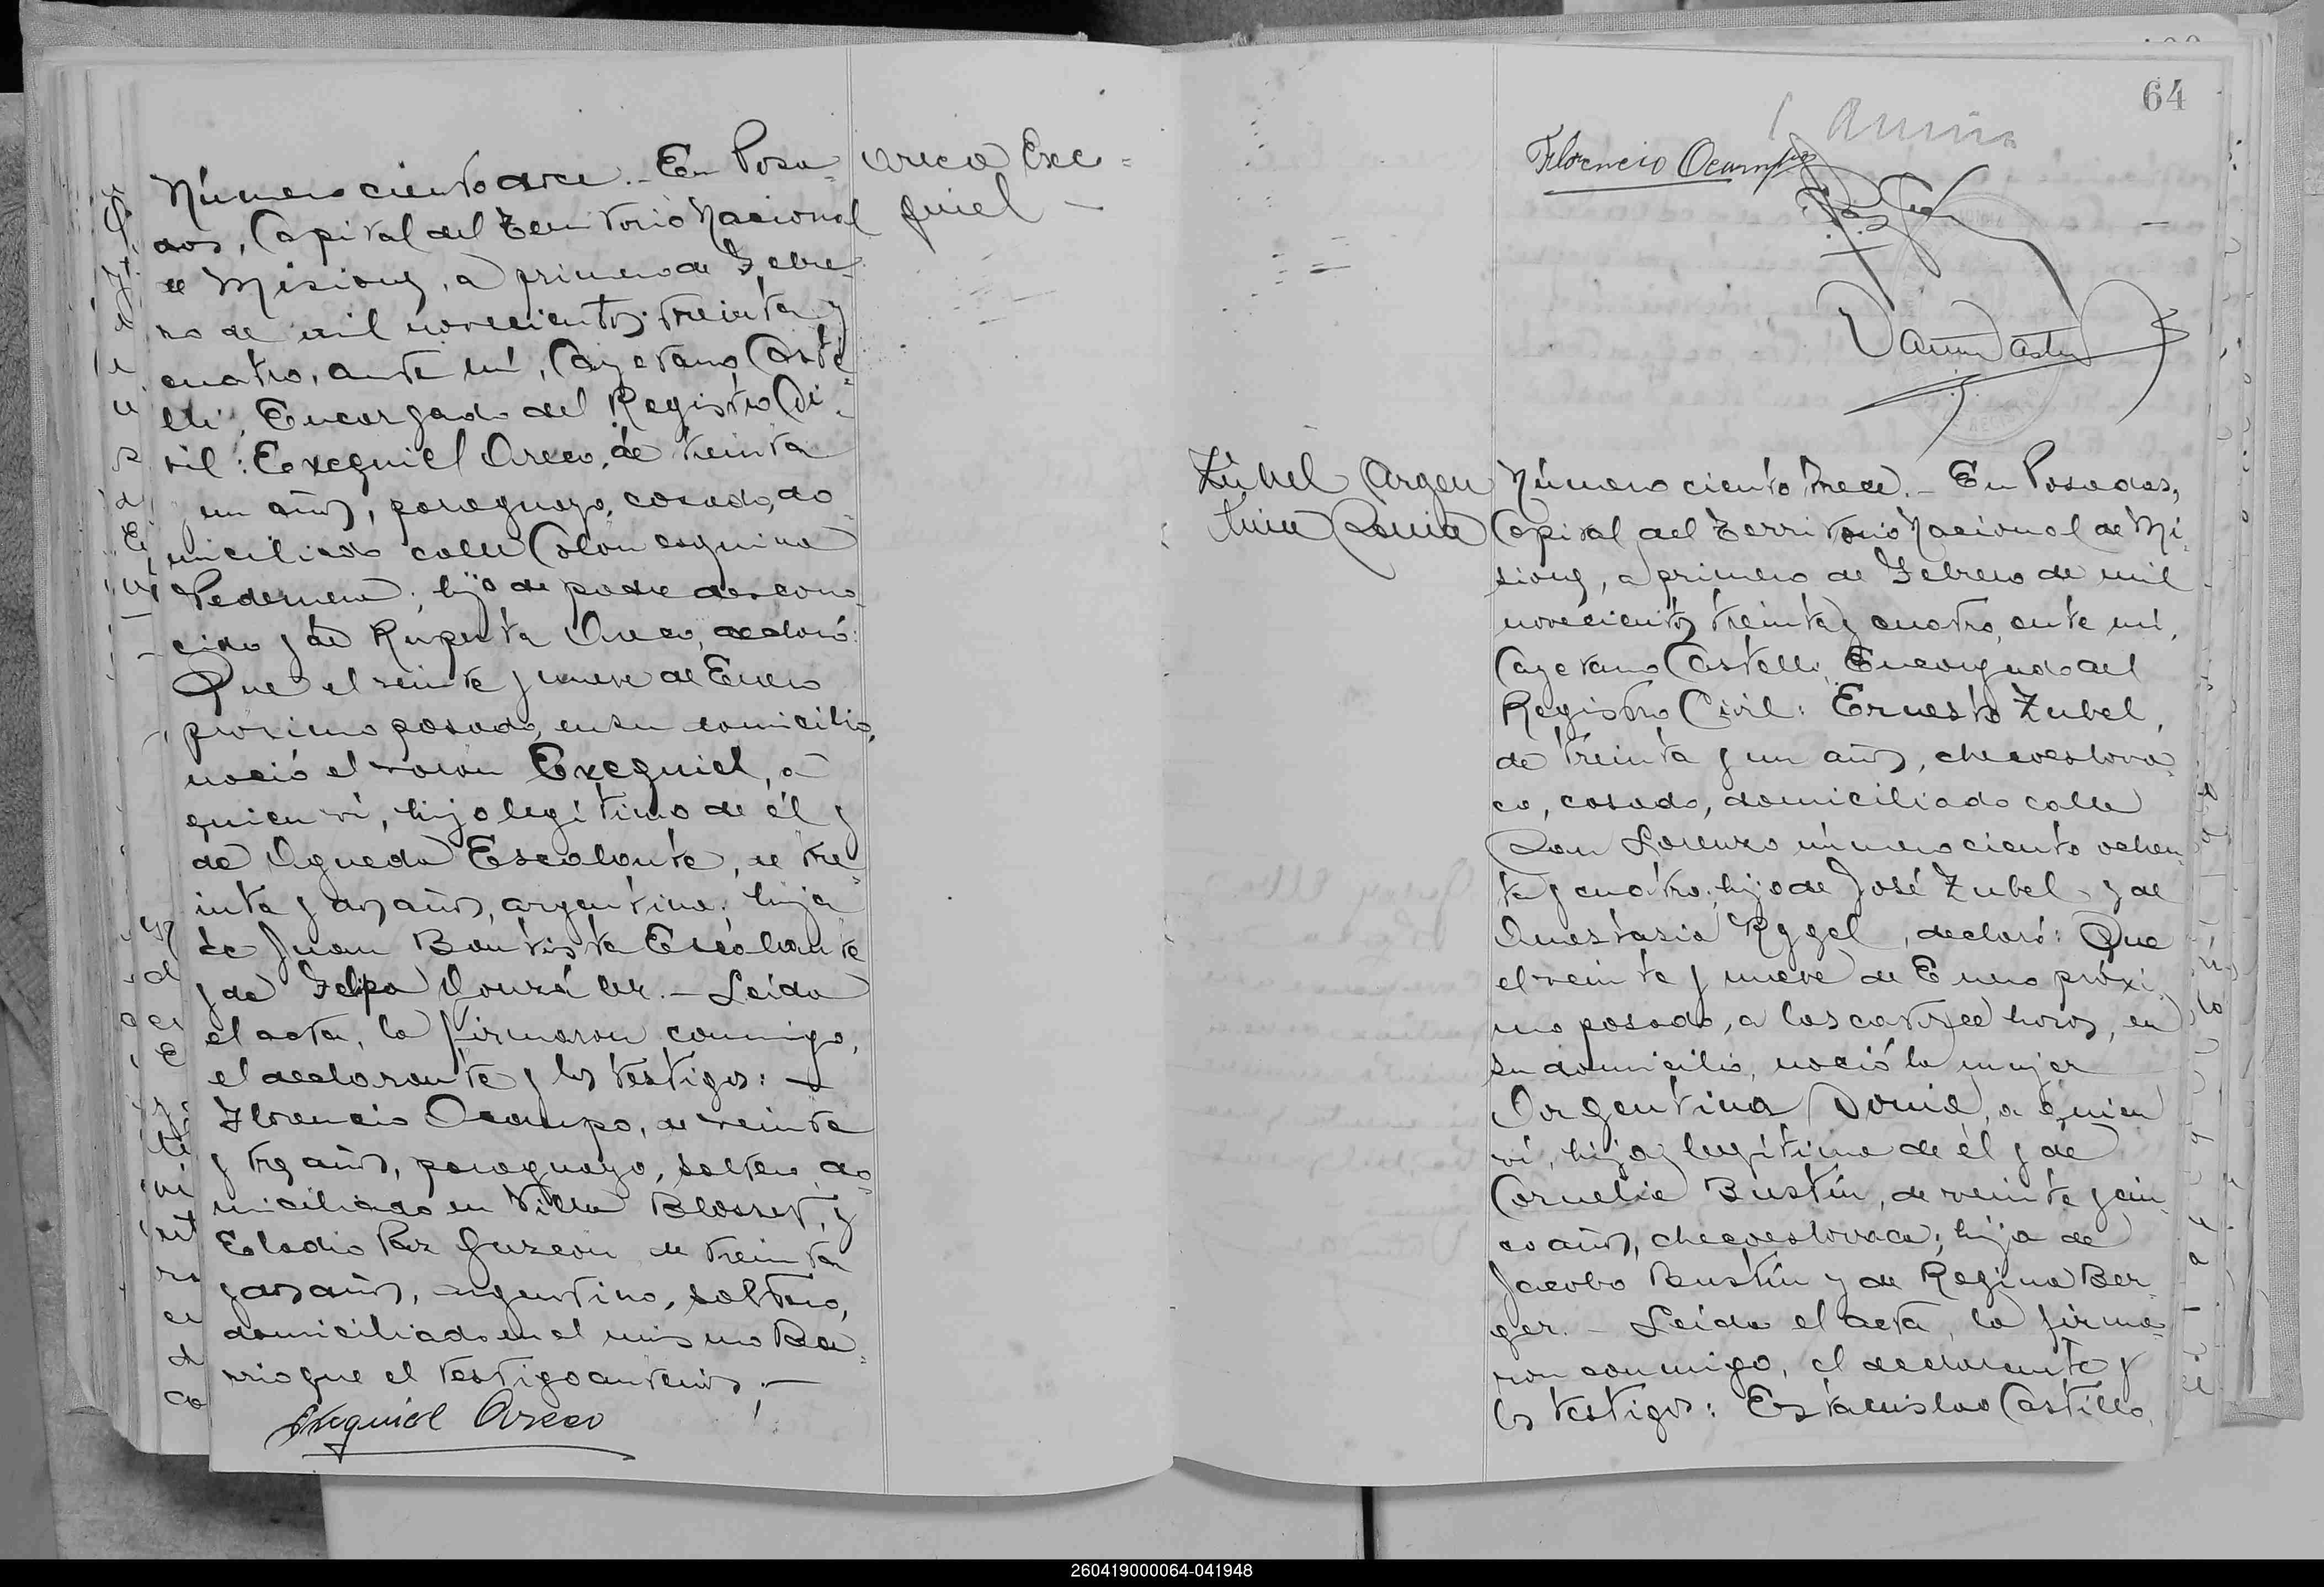 Número ciento doce. - En Posa-
das, Capital del Territorio Nacional
de Misiones, a primero de Febre-
ro de mil novecientos treinta y
cuatro, ante mí, Cayetano Caste-
lli, Encargado del Registro Ci-
vil: Exequiel Areco, de treinta
y un años, paraguayo, casado, do-
miciliado calle Colón esquina
Pedernera; hijo de padre descono-
cido y de Ruperta Areco, declaró:
Que el veinte y nueve de Enero
próximo pasado, en su domicilio,
nació el varón Exequiel, a
quien ví, hijo legítimo de él y
de Agueda Escalante, de tre-
inta y dos años, argentina; hija
de Juan Bautista Escalante
y de Felipa González. - Leida
el acta, la firmaron conmigo,
el declarante y los testigos: -
Florencio Ocampo, de veinte
y tres años, paraguayo, soltero, do-
miciliado en Villa Blosset, y
Eladio Paz Guzeon, de treinta
y dos años, argentino, soltero,
domiciliado en el mismo Ba-
rrio que el testigo anterior. -
Exequiel Areco
Areco Exe-
quiel -
64
Florencio Ocampo
Zubel Argen
tina Sonia
Número ciento trece. - En Posadas,
Capital del Territorio Nacional de Mi-
siones, a primero de Febrero de mil
novecientos treinta y cuatro, ante mí,
Cayetano Castelli, Encargado del
Registro Civil: Ernesto Zubel,
de treinta y un años, checoeslova-
co, casado, domiciliado calle
San Lorenzo número ciento ochen-
ta y cuatro; hijo de José Zubel y de
Anastasia Rygel, declaró: Que
el veinte y nueve de Enero próxi-
mo pasado, a las catorce horas, en
su domicilio, nació la mujer
Argentina Sonia, a quien
ví, hija legítima de él y de
Cornelia Bustin, de veinte y cin-
co años, checoeslovaca; hija de
Jacobo Bustin y de Regina Ber-
ger. - Leida el acta, la firma-
ron conmigo, el declarante y
los testigos: Estanislao Castillo,
260419000064-041948